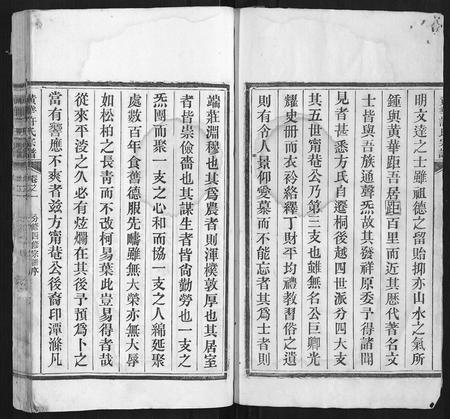 明文達之士雖祖德之留貽抑亦山水之氣所
鍾與黃華距吾居距百里而近其歷代著名文
士皆與吾族通聲炁故其發祥原委予得諸聞
見者甚悉方氏自遷桐後越四世派分四大支
其五世甯菴公乃第三支也雖無名公巨卿光
耀史冊而衣衿絡繹丁財平均禮教習俗之遺
則有令人景仰愛慕而不能忘者其為士者則
端莊淵穆也其為農者則渾樸敦厚也其居室
者皆崇儉嗇也其謀生者皆尚勤勞也一支之
炁團而聚一支之心和而協一支之人綿延聚
處數百年食舊德服先疇雖無大榮亦無大辱
如松柏之長青而不改柯易葉此豈易得者哉
從來平淩之久必有炫爛在其後予預為卜之
當有響應不爽者茲方甯菴公後裔印潭滌凡
黃華許氏宗譜 卷之一 分修四修宗譜序